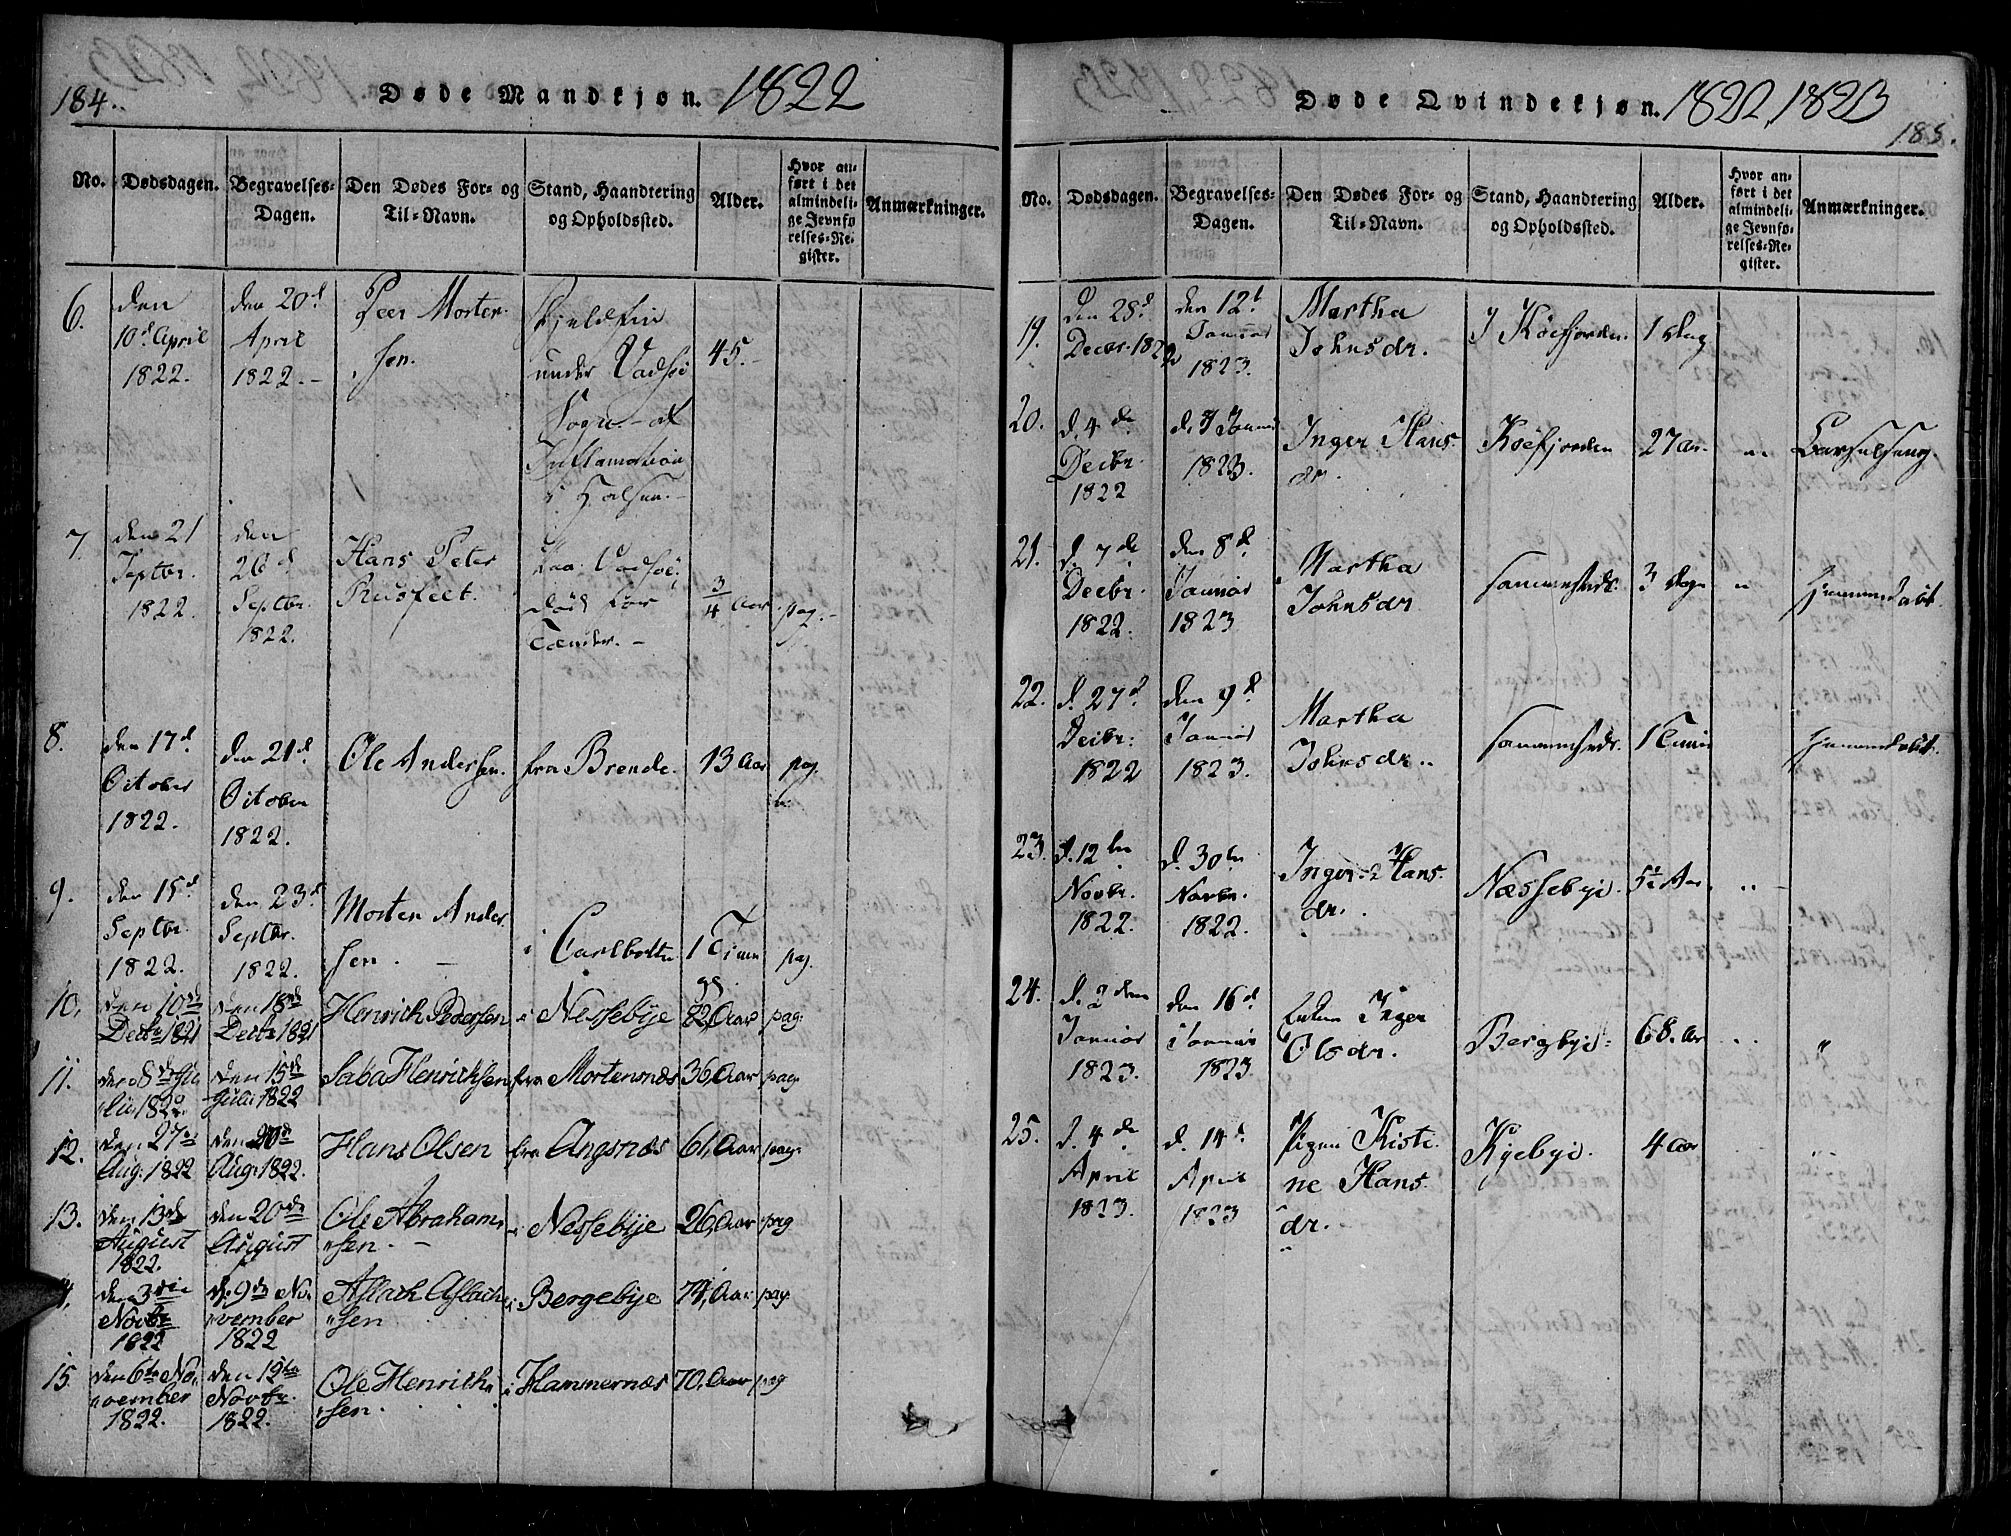 184.
Døde Mandkjøn. 1822
No.
Dødsdagen.
Begravelses-
Dagen.
Den Dødes For- og
Til-Navn.
Stand, Haandtering
og Opholdssted.
Alder.
Hvor an-
ført i det
almindeli-
ge Jevnfø-
relses-Re-
gister.
Anmærkninger.
6.
den
10d April
1822.
den 20d
April
1822.-
Peer Morten-
sen.
Fjeldfin
under Vadsöe
Sogn - af
Inflamation
i Halsen.-
45.-
7.
den 21
Septbr.
1822.
den
26d
Septbr.
1822.
Hans Peter
Rusfeet.
Vadsöe,
død før
Tænder.-
3/4 Aar.
pag.-
8.
den 17d
October
1822.
den 21d
October
1822.
Ole Andersen.
fra Brende.
13 Aar
pag.
9.
den 15d
Septbr.
1822.
den 23d
Septbr.
1822.
Morten Ander
sen. -
i Carlbotn
1 Time
pag.
10.
den 10de
Decbr 1821
den 18de
Decbr 1821
Henrich Pedersen
i Nessebye
82, Aar
pag.
11.
den 8de Ju
lii 1822.
den 15de
Julii 1822
Saba Henrichsen
fra Mortensnæs
36, Aar
pag.
12.
den 27de
Aug: 1822
den 20de
Aug: 1822.
Hans Olsen
fra Angsnæs
61, Aar
pag.
13.
den 13de
August
1822.
den 20de
August
Ole Abraham
"sen. -
i Nessebye
26, Aar
pag
14.
den 3die
Novbr
1822
d. 9de No-
vember
1822
Aslach Aslach
"sen
i Bergebye
74, Aar
pag.
15.
den 6te No-
vember
1822.
den 12te
Novbr.
1822.
Ole Henrich
"sen.
i Hammernæs
70, Aar
pag
185.
Døde Qvindekjøn. 1822, 1823
No.
Dødsdagen.
Begravelses-
Dagen.
Den Dødes For- og
Til-Navn.
Stand, Haandtering
og Opholdssted.
Alder.
Hvor an-
ført i det
almindeli-
ge Jevnfø-
relses-Re-
gister.
Anmærkninger.
19.
Den 28d
Decbr. 1822
den 12t
Januar
1823.
Martha
Johnsdr.
I Köefjorden.
1 dag
20.
d. 4de
Decbr.
1822
Januar
1823.
Inger Hans-
dr.
Köefjorden
27 Aar.
"
Barselseng.
21.
d. 7de
Decbr.
1822.
den 8d
Januar
1823
Martha
Johnsdr
sammesteds.
3 dage
"
hjemmedøbt.
22.
d. 27d
Decbr:
1822
den 9d
Januar
1823.
Martha
Johnsdr.
sammesteds.
1 Time
hjemmedøbt.
23.
d. 12te
Novbr.
1822.
d. 30te
Novbr.
1822.
Inger Hans-
dr.
Næssebye.
5½ Aar.
"
24.
Januar
1823.
den 16d
Januar
1823.
Enken Inger
Olsdr.
Bergbye.
68. Aar
"
25.
d. 4de
April
1823.
d. 14d
April
1823
Pigen Kisti-
ne Hans-
dr.
Kyebye.
4 Aar
"